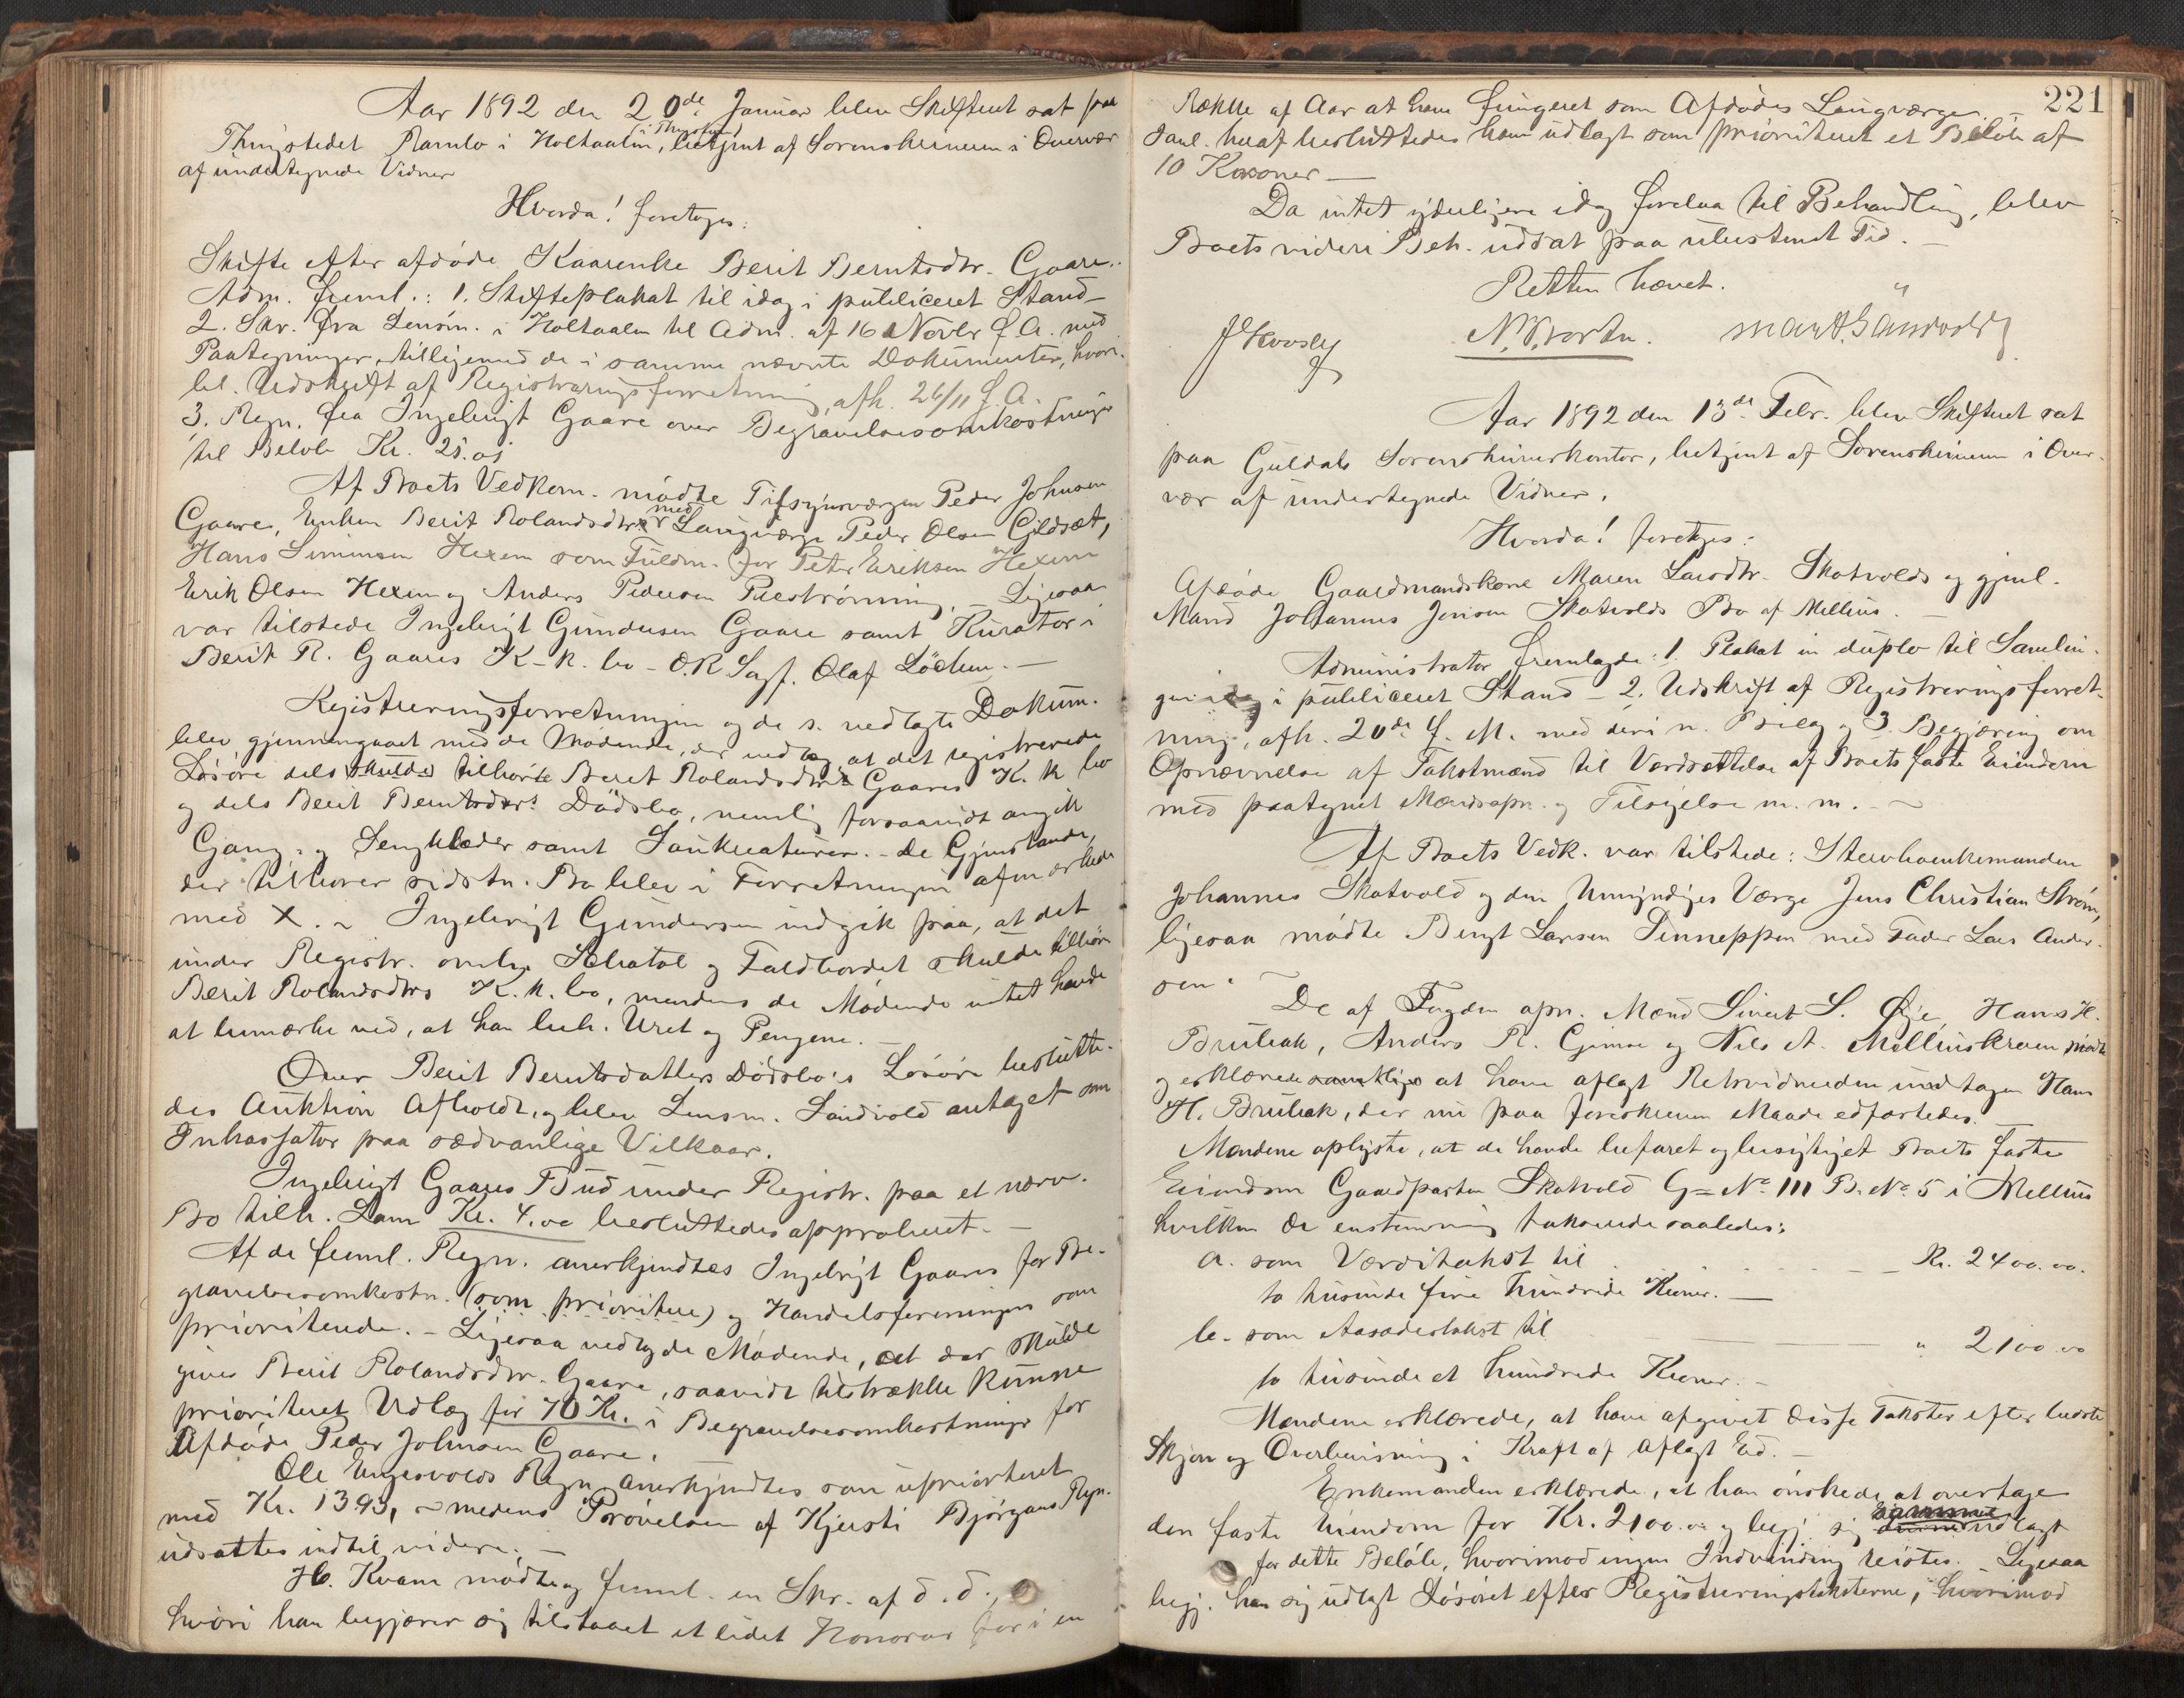 Aar 1892 den 20de Januar blev Skifteret sat paa
Thingstedet Ramlo i Holtaalen, betjent af Sorenskriveren i Overvær
af undertegnede Vidner
Hvorda! foretoges:
Skifte efter afdøde Kaarenke Berit Berntsdtr. Gaare.
Adm. freml.: 1. Skifteplakat til idag i publiceret Stand -
2. Skr. fra Lensm. i Holtaalen til Adm. af 16 Novbr f. A. med
Paategninger, tilligemed de i samme nævnte Dokumenter, hvori-
bl. Udskrift af Registreringsforretning, afh. 26/11 f. A.
3. Regn. fra Ingebrigt Gaare over Begravelsesomkostninger
til Beløb Kr. 25.05
Af Boets Vedkom. mødte Tilsynsværgen Peder Johnsen
Gaare, Enken Berit Rolandsdtr. med Laugværge Peder Olsen Gildset,
Hans Simensen Hexem som Fuldm. for Peter Eriksen Hexem
Erik Olsen Hexem og Anders Pedersen Præstrønning. - Ligesaa
var tilstede Ingebrigt Gundersen Gaare samt Kurator i
Berit R. Gaares K-k. bo - O.R Sagf. Olaf Löchen. -
Registreringsforretningen og de s. vedlagte Dokum.
blev gjennemgaaet med de Mødende, der vedtog, at det registrerede
Løsøre dels skulde tilhørte Berit Rolandsdtrs Gaares K. k bo
og dels Berit Berntsdtrs Dødsbo, nemlig forsaavidt angik
Gang- og Sengklæder samt Saukreaturer. - De Gjenstande,
der tilhører sidstn. Bo blev i Forretningen afmærkede
med X. - Ingebrigt Gundersen indgik paa, at det
under Registr. omh. Schatol og Foldbordet skulde tilhøre
Berit Rolandsdtrs K. k. bo, medens de Mødende intet havde
at bemærke ved, at han beh. Uret og Pengene. -
Over Berit Berntsdatters Dødsbo's Løsøre beslutte-
des Auktion Afholdt, og blev Lensm. Sandvold antaget som
Inkassator paa sædvanlige Vilkaar.
Ingebrigt Gaares Bud under Registr. paa et nærv.
Bo tilh. Lam Kr. 4.00 besluttedes approberet. -
Af de freml. Regn. anerkjendtes Ingebrigt Gaares for Be-
gravelsesomkostn. (som prioritere) og Handelsforeningens som
prioriterede. - Ligesaa vedtog de Mødende, at der skulde
gives Berit Rolandsdtr. Gaare, saavidt tilstrække kunne
prioriteret Udlæg for 70 Kr. i Begravelsesomkostninger for
Afdøde Peder Johnsen Gaare.
Ole Engesvolds Regn anerkjendtes som uprioriteret
med Kr. 13.93, - medens Prøvelsen af Kjersti Bjørgaas Regn.
udsattes indtil videre. -
H. Kvam mødte og freml. en Skr. af d. d.,
hvori han begjærer sig tilstaaet et lidet Honorar for i en
221
Række af Aar at have fungeret som Afdødes Laugværge.
Saml. heraf besluttedes ham udlagt som prioriteret et Beløb af
10 Kroner -
Da intet yderligere idag forelaa til Behandling, blev
Boets videre Beh. udsat paa ubestemt Tid. -
Retten hævet.
N. Svartn. Mart. Sandvold
Aar 1892 den 13de Febr. blev Skifteret sat
paa Guldals Sorenskriverkontor, betjent af Sorenskriveren i Over-
vær af undertegnede Vidner.
Hvorda! foretoges:
Afdøde Gaardmandskone Maren Larsdtr. Skotvolds og gjenl.
Mand Johannes Jensen Skotvolds Bo af Melhus. -
Administrator fremlagde: 1. Plakat in duplo til Samlin-
gen idag i publiceret Stand - 2. Udskrift af Registreringsforret-
ning, afh. 20de f. M. med deri n. Bilag og 3. Begjæring om
Opnævnelse af Takstmænd til Værdsættelse af Boets faste Eiendom
med paategnet Mændsopn. og Tilsigelse m. m. -
Af Boets Vedk. var tilstede: Stervboenkemanden
Johannes Skotvold og den Umyndiges Værge Jens Christian Strøm,
ligesaa mødte Bengt Larsen Sinneppen med Fader Lars Ander-
sen.
De af Fogden opn. Mænd Sivert S. Øie, Hans H.
Brubak, Anders R. Gimse og Nils A. Melhuskroen mødte
og erklærede samtlige at have aflagt Retsvidneeden undtagen Hans
H. Brubak, der nu paa foreskreven Maade edfæstedes. -
Mændene oplyste, at de havde befaret og besigtiget Boets faste
Eiendom Gaardparten Skotvold G=No 111 B. No 5 i Melhus
hvilken de enstemmig taxerede saaledes:
a. som Værditakst til Kr. 2400.00.
to tusinde fire hundrede Kroner. -
b. som Aasædestakst til " 2100.00
to tusinde et hundrede Kroner. -
Mændene erklærede, at have afgivet disse Takster efter bedste
Skjøn og Overbevisning i Kraft af aflagt Ed. -
Enkemanden erklærede, at han ønskede at overtage
den faste Eiendom for Kr. 2100.00 og begj. sig samme udlagt
for dette Beløb, hvorimod ingen Indvending reistes. Ligesaa
begj. han sig udlagt Løsøret efter Registreringstaksterne, hvorimod